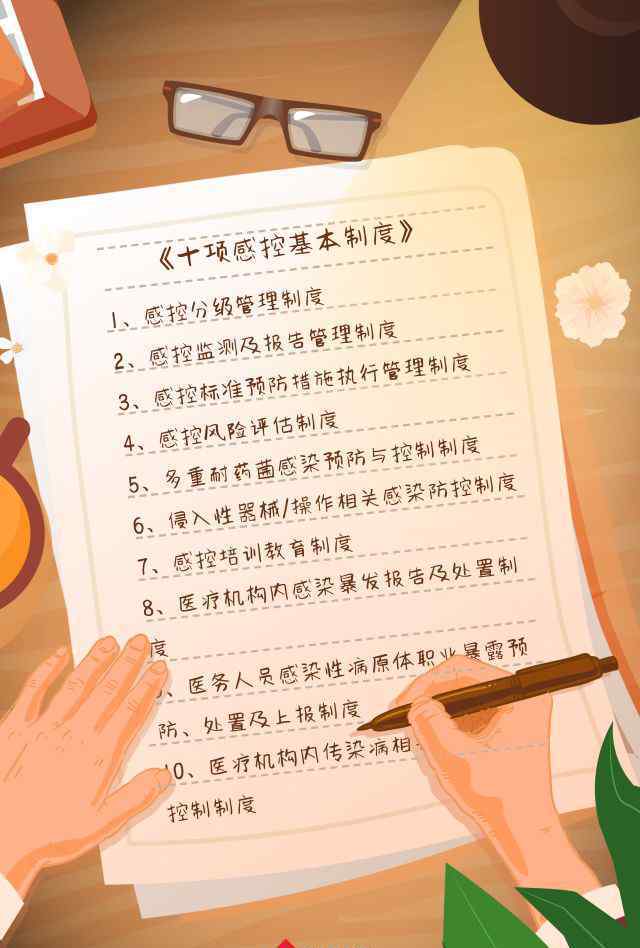 《十项感控基本制度》
1、感控分级管理制度
2、感控监测及报告管理制度
3、感控标准预防措施执行管理制度
4、感控风险评估制度
5、多重耐药菌感染预防与控制制度
6、侵入性器械/操作相关感染防控制度
7、感控培训教育制度
8、医疗机构内感染暴发报告及处置制
度
、医务人员感染性病原体职业暴露预
防、处置及上报制度
10、医疗机构内传染病相
控制制度